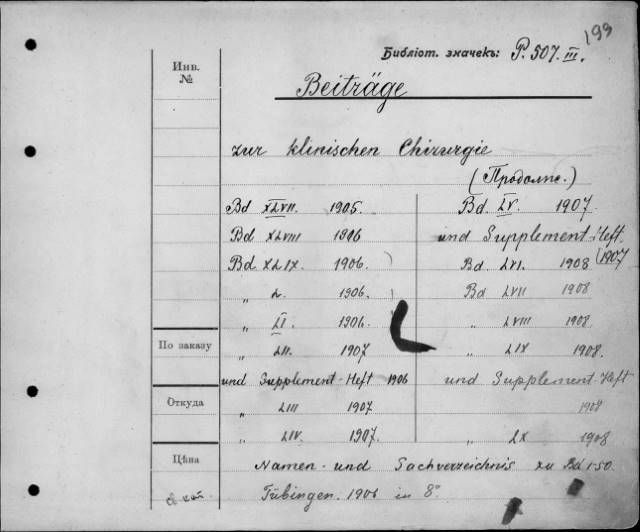 193
Библіот. значекъ: P. 507. III.
Инв. №
Beiträge
zur klinischen Chirurgie
(Продолже.)
Bd XLVII. 1905.
Bd XLVIII 1906
Bd XLIX. 1906.
„ L. 1906.
„ LI. 1906.
„ LII. 1907
und Supplement-Heft 1906
„ LIII 1907
„ LIV. 1907.
Bd. LV. 1907
und Supplement-Heft.
(1907
Bd. LVI. 1908
Bd LVII 1908
„ LVIII 1908.
„ LIX 1908.
und Supplement-Heft
1908
„ LX 1908
По заказу
Откуда
Цѣна
Namen- und Sachverzeichnis zu Bd 1-50.
Tübingen. 1906 in 8°